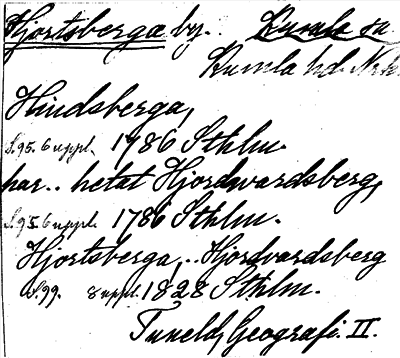 Hjortsberga by. Kumla sn
Kumla hd. Nrk
Hindsberga,
S. 95. 6 uppl. 1786 Sthlm.
har.. hetat Hjordvardsberg,
S. 95 6 uppl. 1786 Sthlm.
Hjortsberga,.. Hjordvardsberg
S. 99. 8 uppl. 1828 Sthlm.
Tuneld, Geografi. II.